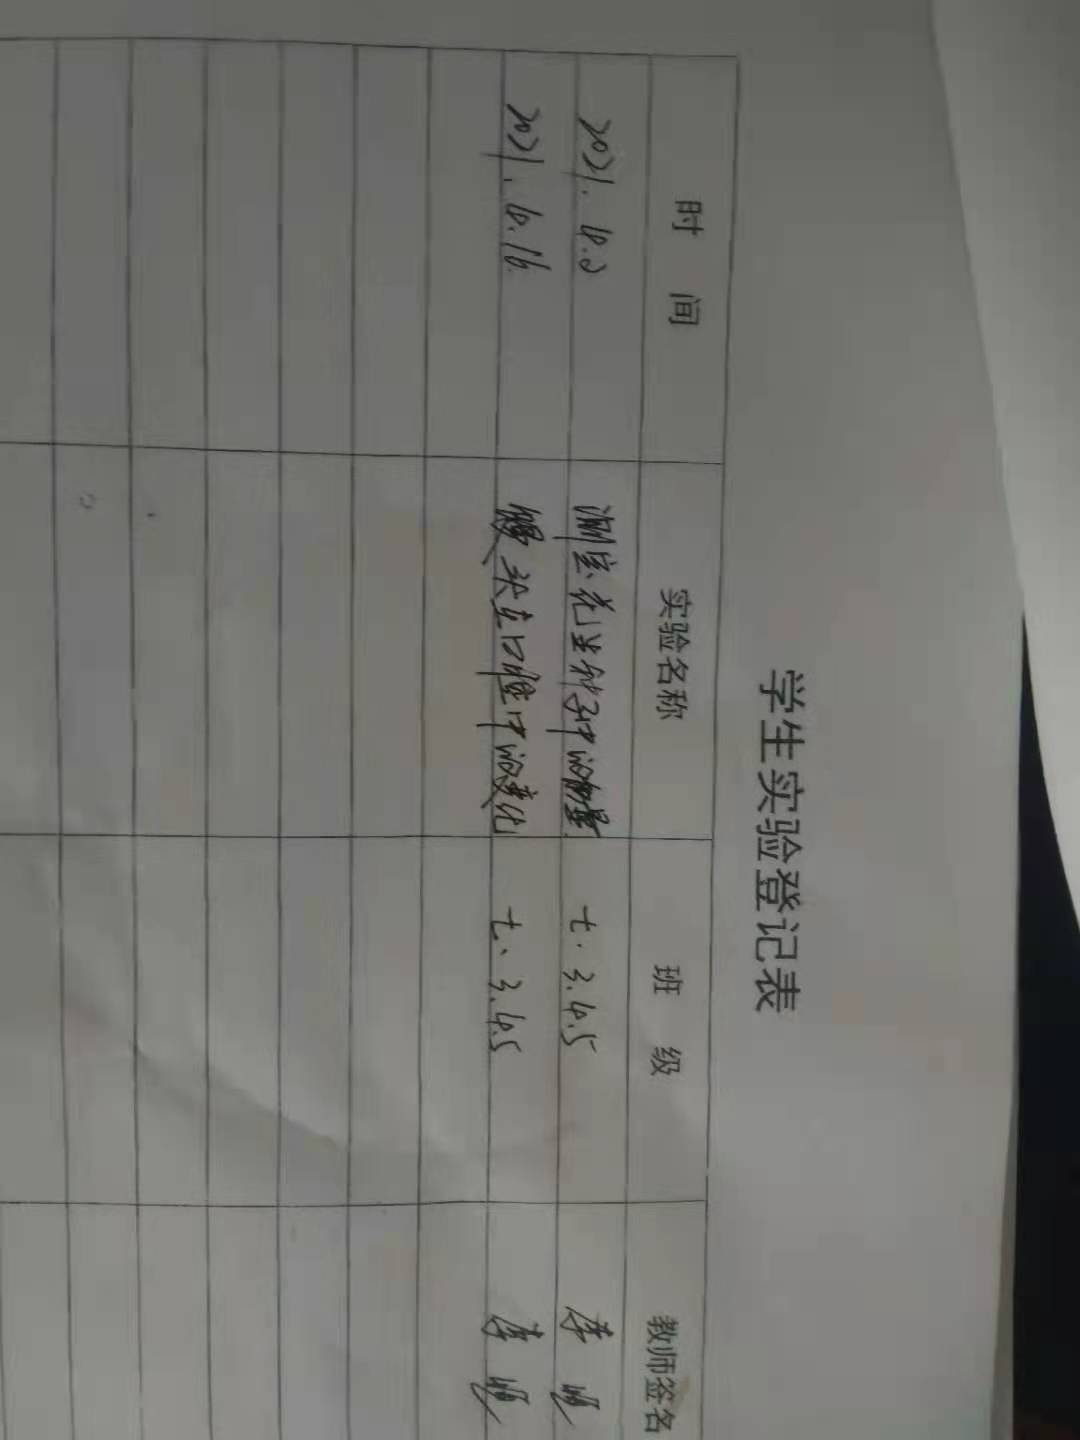 学生实验登记表
时 间 实验名称 班 级 教师签名
2021.4.2 测定花生种子中的能量 七.3.4.5 李
2021.4.16 馒头在口腔中的变化 七.3.4.5 李